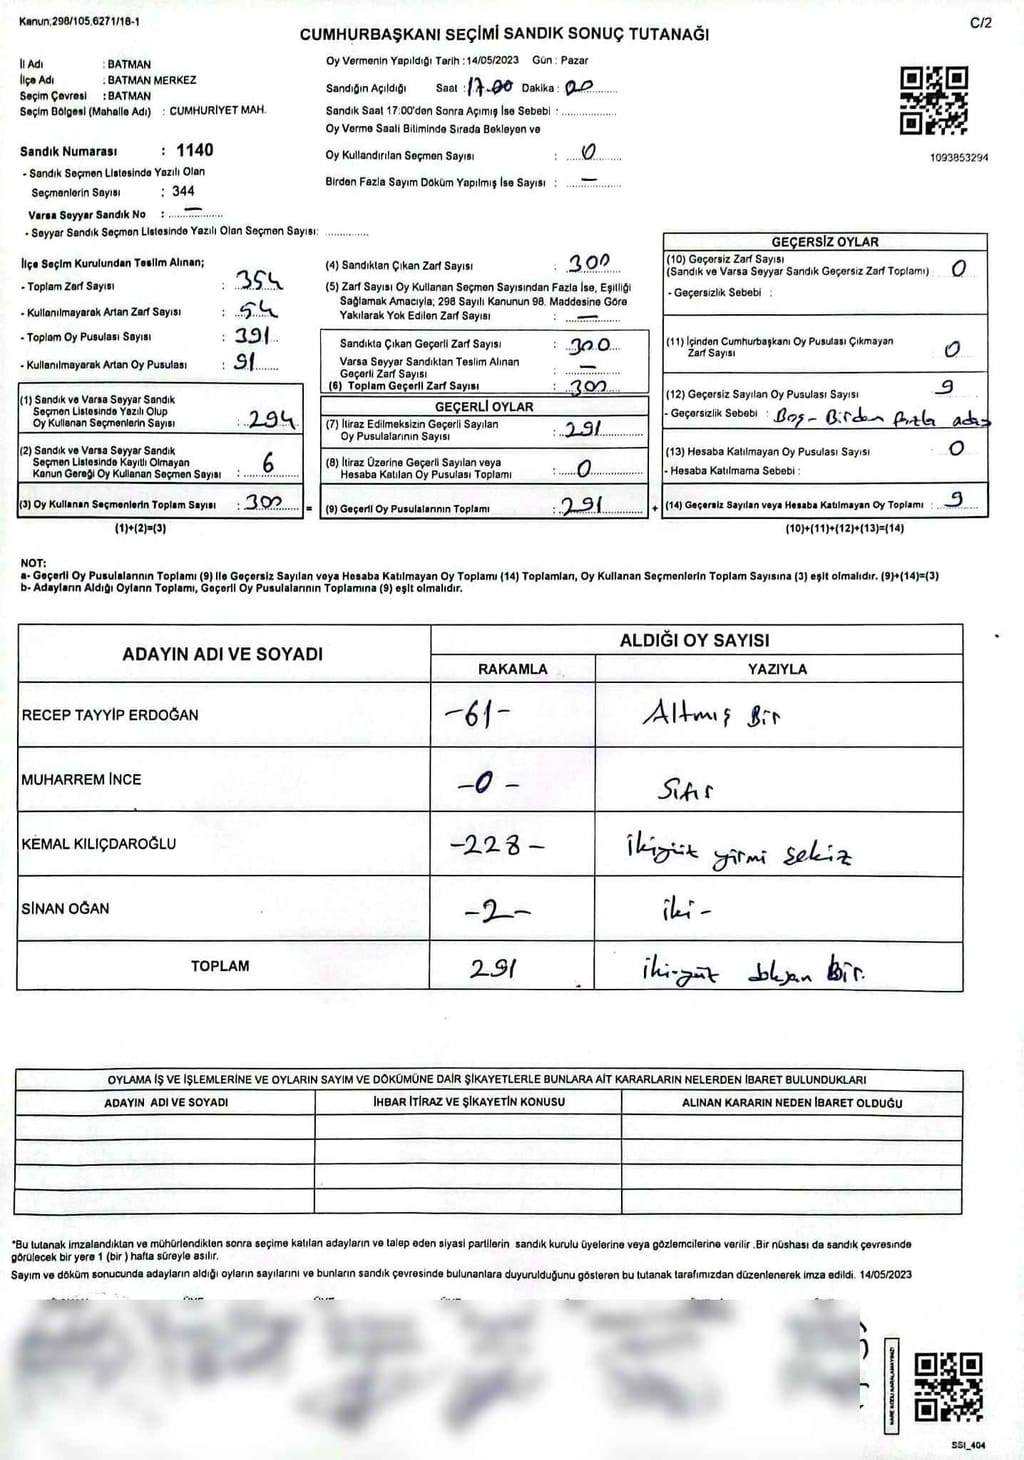 Kanun;298/105,6271/18-1
C/2
CUMHURBAŞKANI SEÇİMİ SANDIK SONUÇ TUTANAĞI
İl Adı : BATMAN
İlçe Adı : BATMAN MERKEZ
Seçim Çevresi : BATMAN
Seçim Bölgesi (Mahalle Adı) : CUMHURİYET MAH.
Sandık Numarası : 1140
- Sandık Seçmen Listesinde Yazılı Olan
Seçmenlerin Sayısı : 344
Varsa Seyyar Sandık No : —
- Seyyar Sandık Seçmen Listesinde Yazılı Olan Seçmen Sayısı: ..............
Oy Vermenin Yapıldığı Tarih :14/05/2023 Gün : Pazar
Sandığın Açıldığı Saat : 17.00 Dakika : 00
Sandık Saat 17:00'den Sonra Açımış İse Sebebi : ..............
Oy Verme Saati Bitiminde Sırada Bekleyen ve
Oy Kullandırılan Seçmen Sayısı : 0
Birden Fazla Sayım Döküm Yapılmış İse Sayısı : —
1093853294
İlçe Seçim Kurulundan Teslim Alınan;
- Toplam Zarf Sayısı : 354
- Kullanılmayarak Artan Zarf Sayısı : 54
- Toplam Oy Pusulası Sayısı : 391
- Kullanılmayarak Artan Oy Pusulası : 91
(1) Sandık ve Varsa Seyyar Sandık
Seçmen Listesinde Yazılı Olup
Oy Kullanan Seçmenlerin Sayısı : 294
(2) Sandık ve Varsa Seyyar Sandık
Seçmen Listesinde Kayıtlı Olmayan
Kanun Gereği Oy Kullanan Seçmen Sayısı : 6
(3) Oy Kullanan Seçmenlerin Toplam Sayısı : 300 =
(1)+(2)=(3)
(4) Sandıktan Çıkan Zarf Sayısı : 300
(5) Zarf Sayısı Oy Kullanan Seçmen Sayısından Fazla İse, Eşitliği
Sağlamak Amacıyla; 298 Sayılı Kanunun 98. Maddesine Göre
Yakılarak Yok Edilen Zarf Sayısı : —
Sandıkta Çıkan Geçerli Zarf Sayısı : 300
Varsa Seyyar Sandıktan Teslim Alınan
Geçerli Zarf Sayısı : —
(6) Toplam Geçerli Zarf Sayısı : 300
GEÇERLİ OYLAR
(7) İtiraz Edilmeksizin Geçerli Sayılan
Oy Pusulalarının Sayısı : 291
(8) İtiraz Üzerine Geçerli Sayılan veya
Hesaba Katılan Oy Pusulası Toplamı : 0
(9) Geçerli Oy Pusulalarının Toplamı : 291 +
GEÇERSİZ OYLAR
(10) Geçersiz Zarf Sayısı
(Sandık ve Varsa Seyyar Sandık Geçersiz Zarf Toplamı) : 0
- Geçersizlik Sebebi :
(11) İçinden Cumhurbaşkanı Oy Pusulası Çıkmayan
Zarf Sayısı : 0
(12) Geçersiz Sayılan Oy Pusulası Sayısı : 9
- Geçersizlik Sebebi : Boş - Birden fazla aday
(13) Hesaba Katılmayan Oy Pusulası Sayısı : 0
- Hesaba Katılmama Sebebi :
(14) Geçersiz Sayılan veya Hesaba Katılmayan Oy Toplamı : 9
(10)+(11)+(12)+(13)=(14)
NOT:
a- Geçerli Oy Pusulalarının Toplamı (9) ile Geçersiz Sayılan veya Hesaba Katılmayan Oy Toplamı (14) Toplamları, Oy Kullanan Seçmenlerin Toplam Sayısına (3) eşit olmalıdır. (9)+(14)=(3)
b- Adayların Aldığı Oyların Toplamı, Geçerli Oy Pusulalarının Toplamına (9) eşit olmalıdır.
ADAYIN ADI VE SOYADI
ALDIĞI OY SAYISI
RAKAMLA YAZIYLA
RECEP TAYYİP ERDOĞAN -61- Altmış Bir
MUHARREM İNCE -0- Sıfır
KEMAL KILIÇDAROĞLU -228- ikiyüz yirmi sekiz
SİNAN OĞAN -2- iki-
TOPLAM 291 iki-yüz doksan Bir.
OYLAMA İŞ VE İŞLEMLERİNE VE OYLARIN SAYIM VE DÖKÜMÜNE DAİR ŞİKAYETLERLE BUNLARA AİT KARARLARIN NELERDEN İBARET BULUNDUKLARI
ADAYIN ADI VE SOYADI İHBAR İTİRAZ VE ŞİKAYETİN KONUSU ALINAN KARARIN NEDEN İBARET OLDUĞU
*Bu tutanak imzalandıktan ve mühürlendikten sonra seçime katılan adayların ve talep eden siyasi partilerin sandık kurulu üyelerine veya gözlemcilerine verilir .Bir nüshası da sandık çevresinde
görülecek bir yere 1 (bir ) hafta süreyle asılır.
Sayım ve döküm sonucunda adayların aldığı oyların sayılarını ve bunların sandık çevresinde bulunanlara duyurulduğunu gösteren bu tutanak tarafımızdan düzenlenerek imza edildi. 14/05/2023
KARE KODU KARALAMAYINIZ!
SSI_404